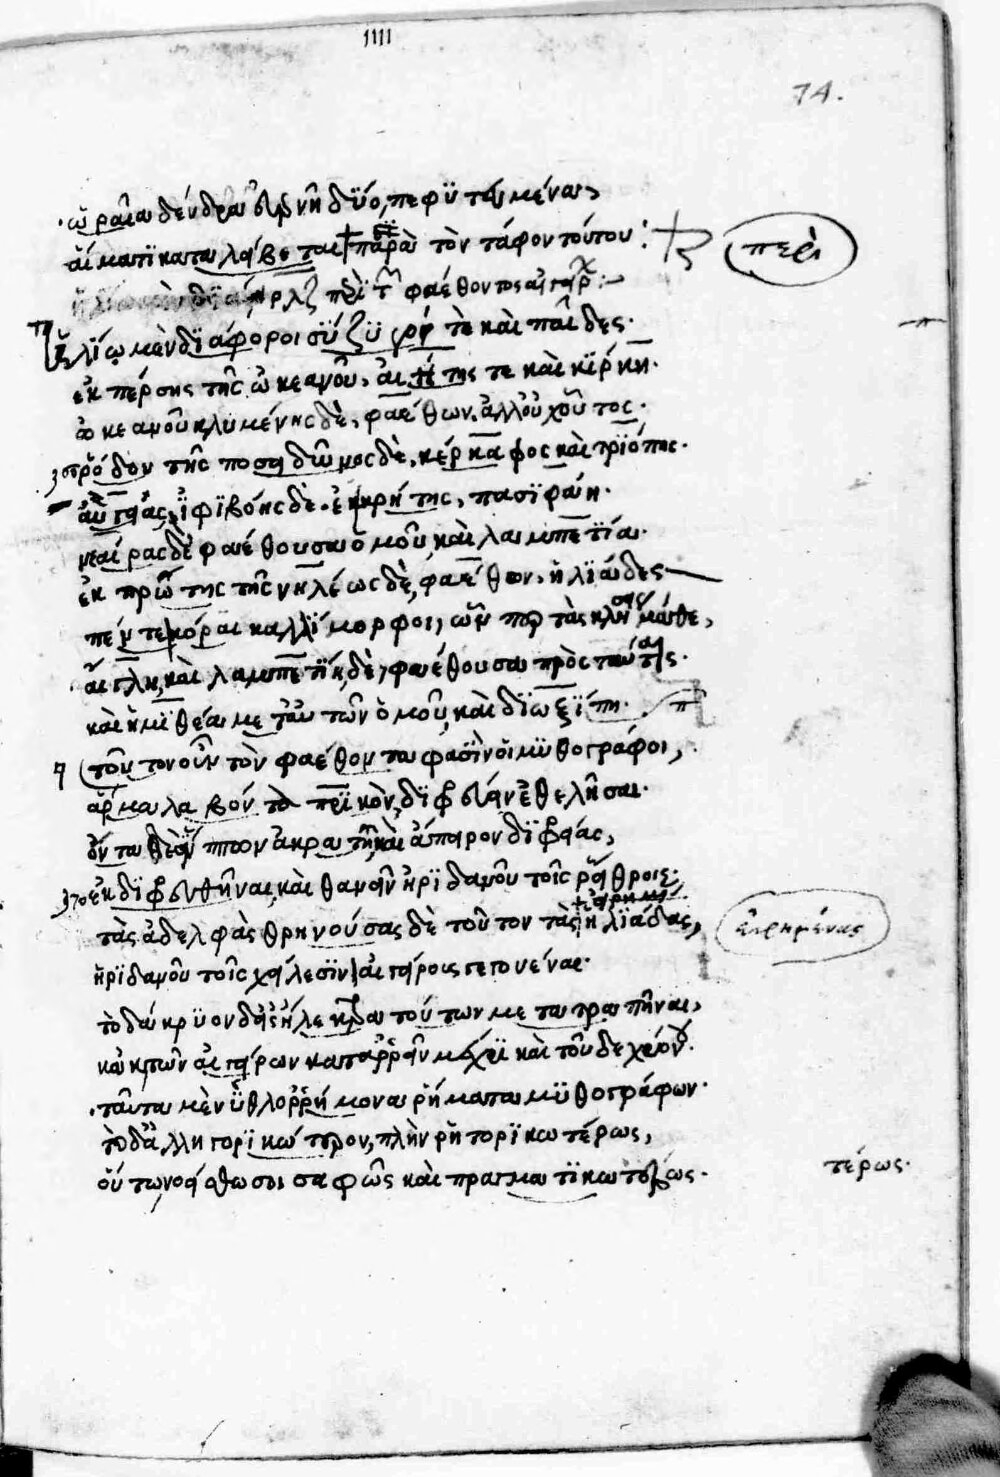 74.
ὡραῖα δένδρα εὐγενῆ δύο, πεφυτευμένα,
αἵματι καταλάβετο παρὰ τὸν τάφον τούτου:
περὶ
περὶ τοῦ φαέθοντος
Ἡλίῳ μὲν διάφοροι σύζυγοί τε καὶ παῖδες·
ἐκ πέρσης τῆς ὠκεανοῦ, αἰήτης τε καὶ κίρκη·
ὠκεανοῦ κλυμένης δὲ, φαέθων, ἀλλ' οὐχ οὗτος·
ῥόδου τῆς ποσειδῶνος δὲ, κέρκαφος καὶ τριόπης·
αὐγέας, ἰφιβόης δὲ· ἐκ κρήτης, πασιφάη·
νεαίρας δὲ φαέθουσα ὁμοῦ καὶ λαμπετία·
ἐκ πρώτης τῆς νηλέως δὲ, φαέθων, ἡλιάδες
πέντε κόραι καλλίμορφοι, ὧν περ τὰς κλήσεις μάθε,
αἴγλη, καὶ λαμπετίη δὲ, φαέθουσα πρὸς ταύταις·
καὶ ἡμιθέα μετ' αὐτῶν ὁμοῦ καὶ διωξίππη·
τοῦτον οὖν τὸν φαέθοντά φασιν οἱ μυθογράφοι,
ἅρμα λαβόντα πατρικὸν, διφρείαν ἐθελῆσαι·
ὄντα δὲ ἵππων ἀκρατῆ καὶ ἄπειρον διφρείας,
ἐκδιφρευθῆναι, καὶ θανεῖν ἠριδανοῦ τοῖς ῥείθροις·
εἰρημένας
τὰς ἀδελφὰς θρηνούσας δὲ τοῦτον τὰς ἡλιάδας,
εἰρημένας
ἠριδανοῦ τοῖς χείλεσιν αἰγείρους γεγονέναι·
τὸ δάκρυον δ' εἰς ἤλεκτρα τούτων μετατραπῆναι,
κἀκ τῶν αἰγείρων καταρρεῖν μέχρι καὶ τοῦδε χρόνου·
ταῦτα μὲν ὑθλορρήμονα ῥήματα μυθογράφων·
τὸ δ' ἀλληγορικώτερον, πλὴν ῥητορικωτέρως,
οὕτω νοείσθω σοι σαφῶς καὶ πραγματικωτέρως·
τέρως·